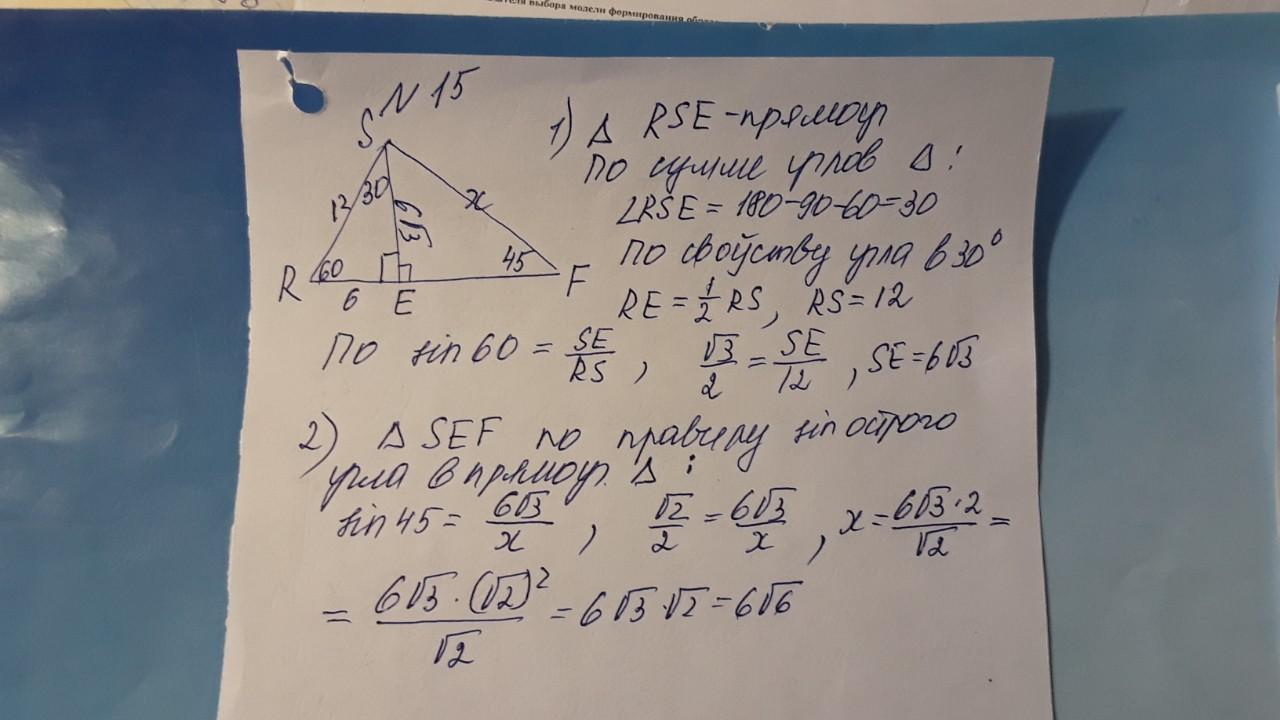 ателя выбора модели формирования обра
N 15
S
30
12
6√3
x
60
45
R
6
E
F
1) Δ RSE-прямоуг
По сумме углов Δ:
∠RSE = 180-90-60=30
По свойству угла в 30°
RE = 1/2 RS, RS=12
По sin60 = SE/RS, √3/2 = SE/12, SE=6√3
2) Δ SEF по правилу sin острого
угла в прямоуг. Δ:
sin45= 6√3/x, √2/2 = 6√3/x, x= 6√3·2/√2 =
= 6√3·(√2)²/√2 = 6√3·√2=6√6